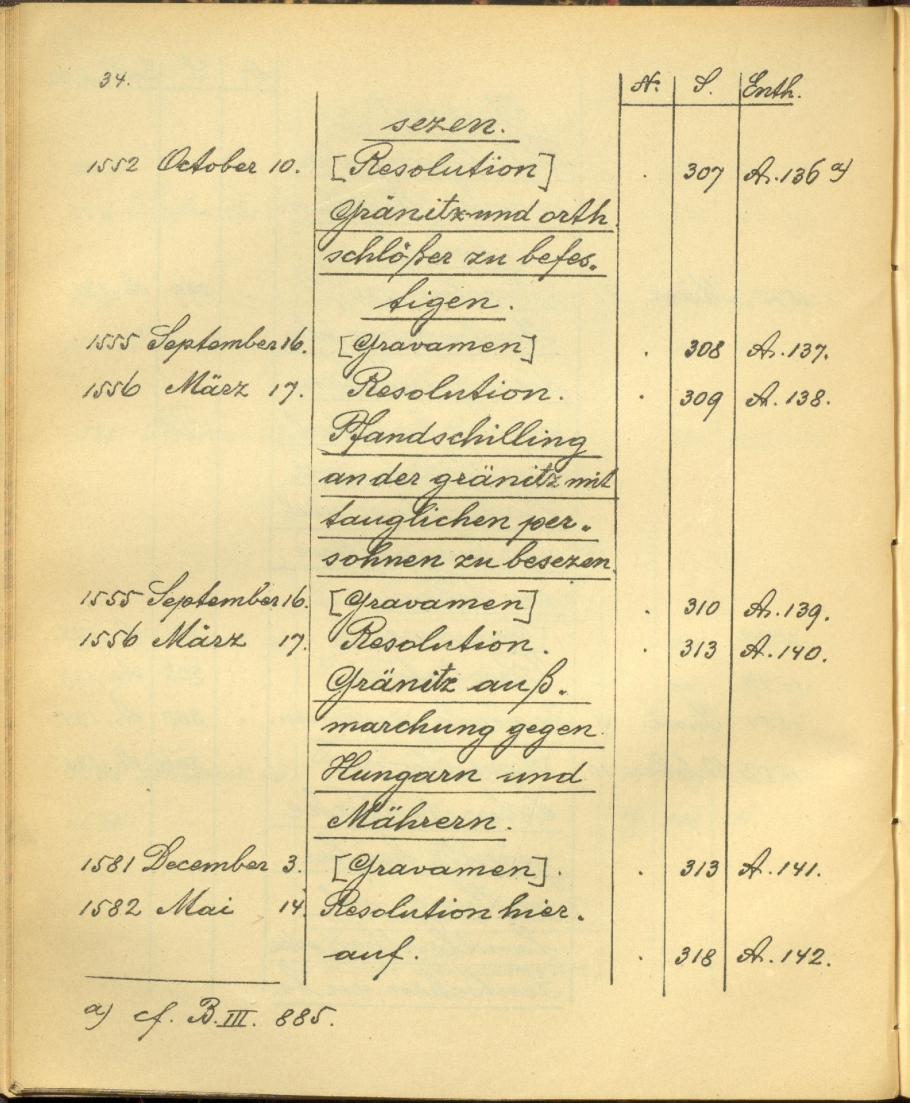 34.
N: S. Enth.
sezen.
1552 October 10. [Resolution] . 307 A. 136 a)
Gränitz und orth
schlößer zu befes„
tigen.
1555 September 16. [Gravamen] . 308 A. 137.
1556 März 17. Resolution. . 309 A. 138.
Pfandschilling
an der gränitz mit
tauglichen per„
sohnen zu besezen.
1555 September 16. [Gravamen] . 310 A. 139.
1556 März 17. Resolution. . 313 A. 140.
Gränitz auß„
marchung gegen
Hungarn und
Mährern.
1581 December 3. [Gravamen]. . 313 A. 141.
1582 Mai 14. Resolution hier„
auf. . 318 A. 142.
a) cf. B. III. 885.